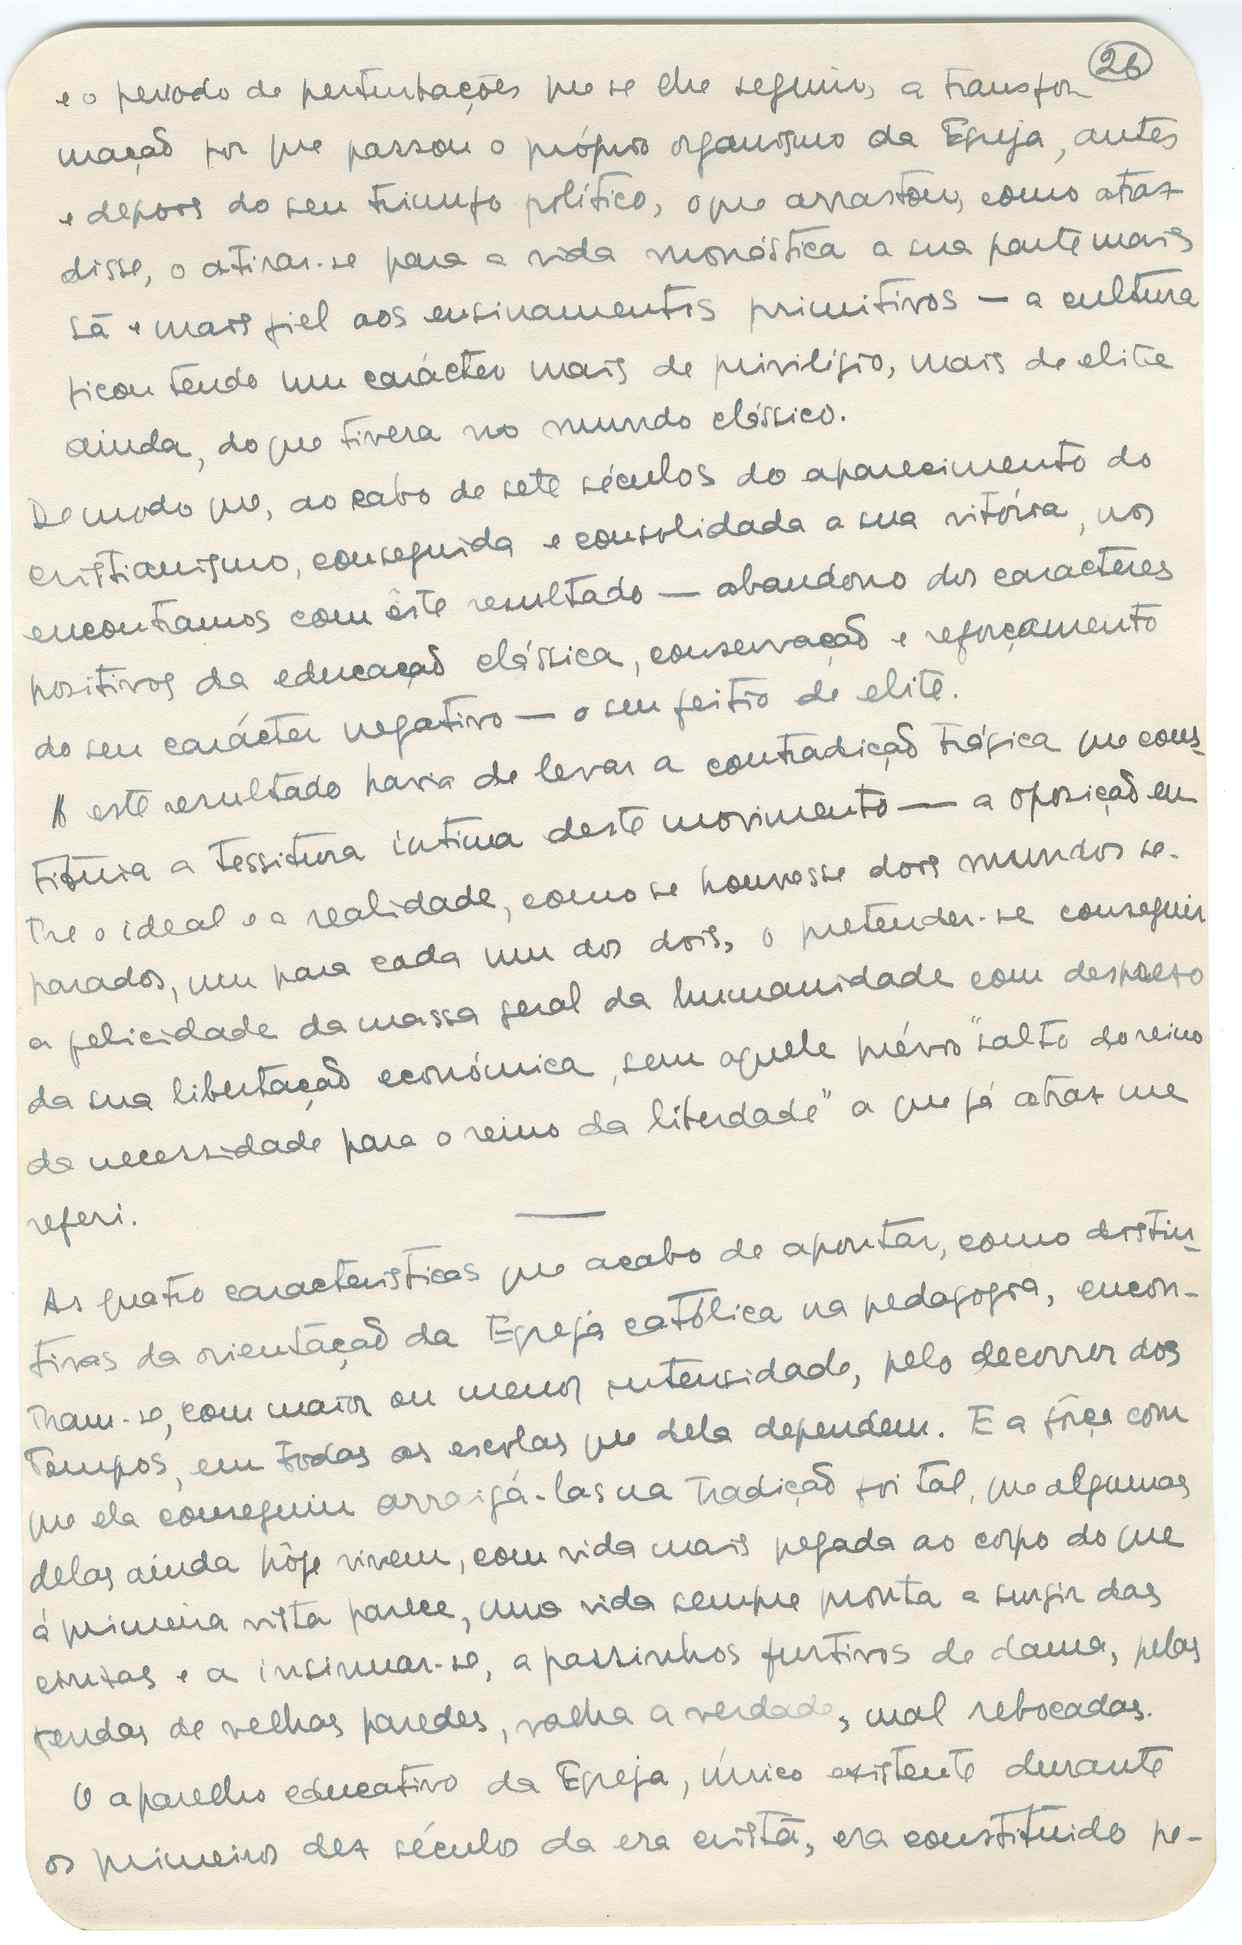 26
e o período de perturbações que se lhe seguiu, a transfor
mação por que passou o próprio organismo da Egreja, antes
e depois do seu triunfo político, o que arrastou, como atraz
disse, o atirar-se para a vida monástica a sua parte mais
sã e mais fiel aos ensinamentos primitivos — a cultura
ficou tendo um carácter mais de priviligio, mais de elite
ainda, do que tivera no mundo clássico.
De modo que, ao cabo de sete séculos do aparecimento do
cristianismo, conseguida e consolidada a sua vitória, nos
encontramos com êste resultado — abandono dos caracteres
positivos da educação clássica, conservação e reforçamento
do seu carácter negativo — o seu feitio de elite.
A este resultado havia de levar a contradição trágica que cons-
tituia a tessitura íntima deste movimento — a oposição en
tre o ideal e a realidade, como se houvesse dois mundos se-
parados, um para cada um dos dois, o pretender-se conseguir
a felicidade da massa geral da humanidade com desprezo
da sua libertação económica, sem aquele prévio "salto do reino
da necessidade para o reino da liberdade" a que já atraz me
referi.
As quatro caracteristicas que acabo de apontar, como distin-
tivas da orientação da Egreja católica na pedagogia, encon-
tram-se, com maior ou menor intensidade, pelo decorrer dos
tempos, em todas as escolas que dela dependem. E a fôrça com
que ela conseguiu arraigá-las na tradição foi tal, que algumas
delas ainda hôje vivem, com vida mais pegada ao corpo do que
á primeira vista parece, uma vida sempre pronta a surgir das
cinzas e a insinuar-se, a passinhos furtivos de dama, pelas
fendas de velhas paredes, valha a verdade, mal rebocadas.
O aparelho educativo da Egreja, único existente durante
os primeiros dez séculos da era cristã, era constituido pe-